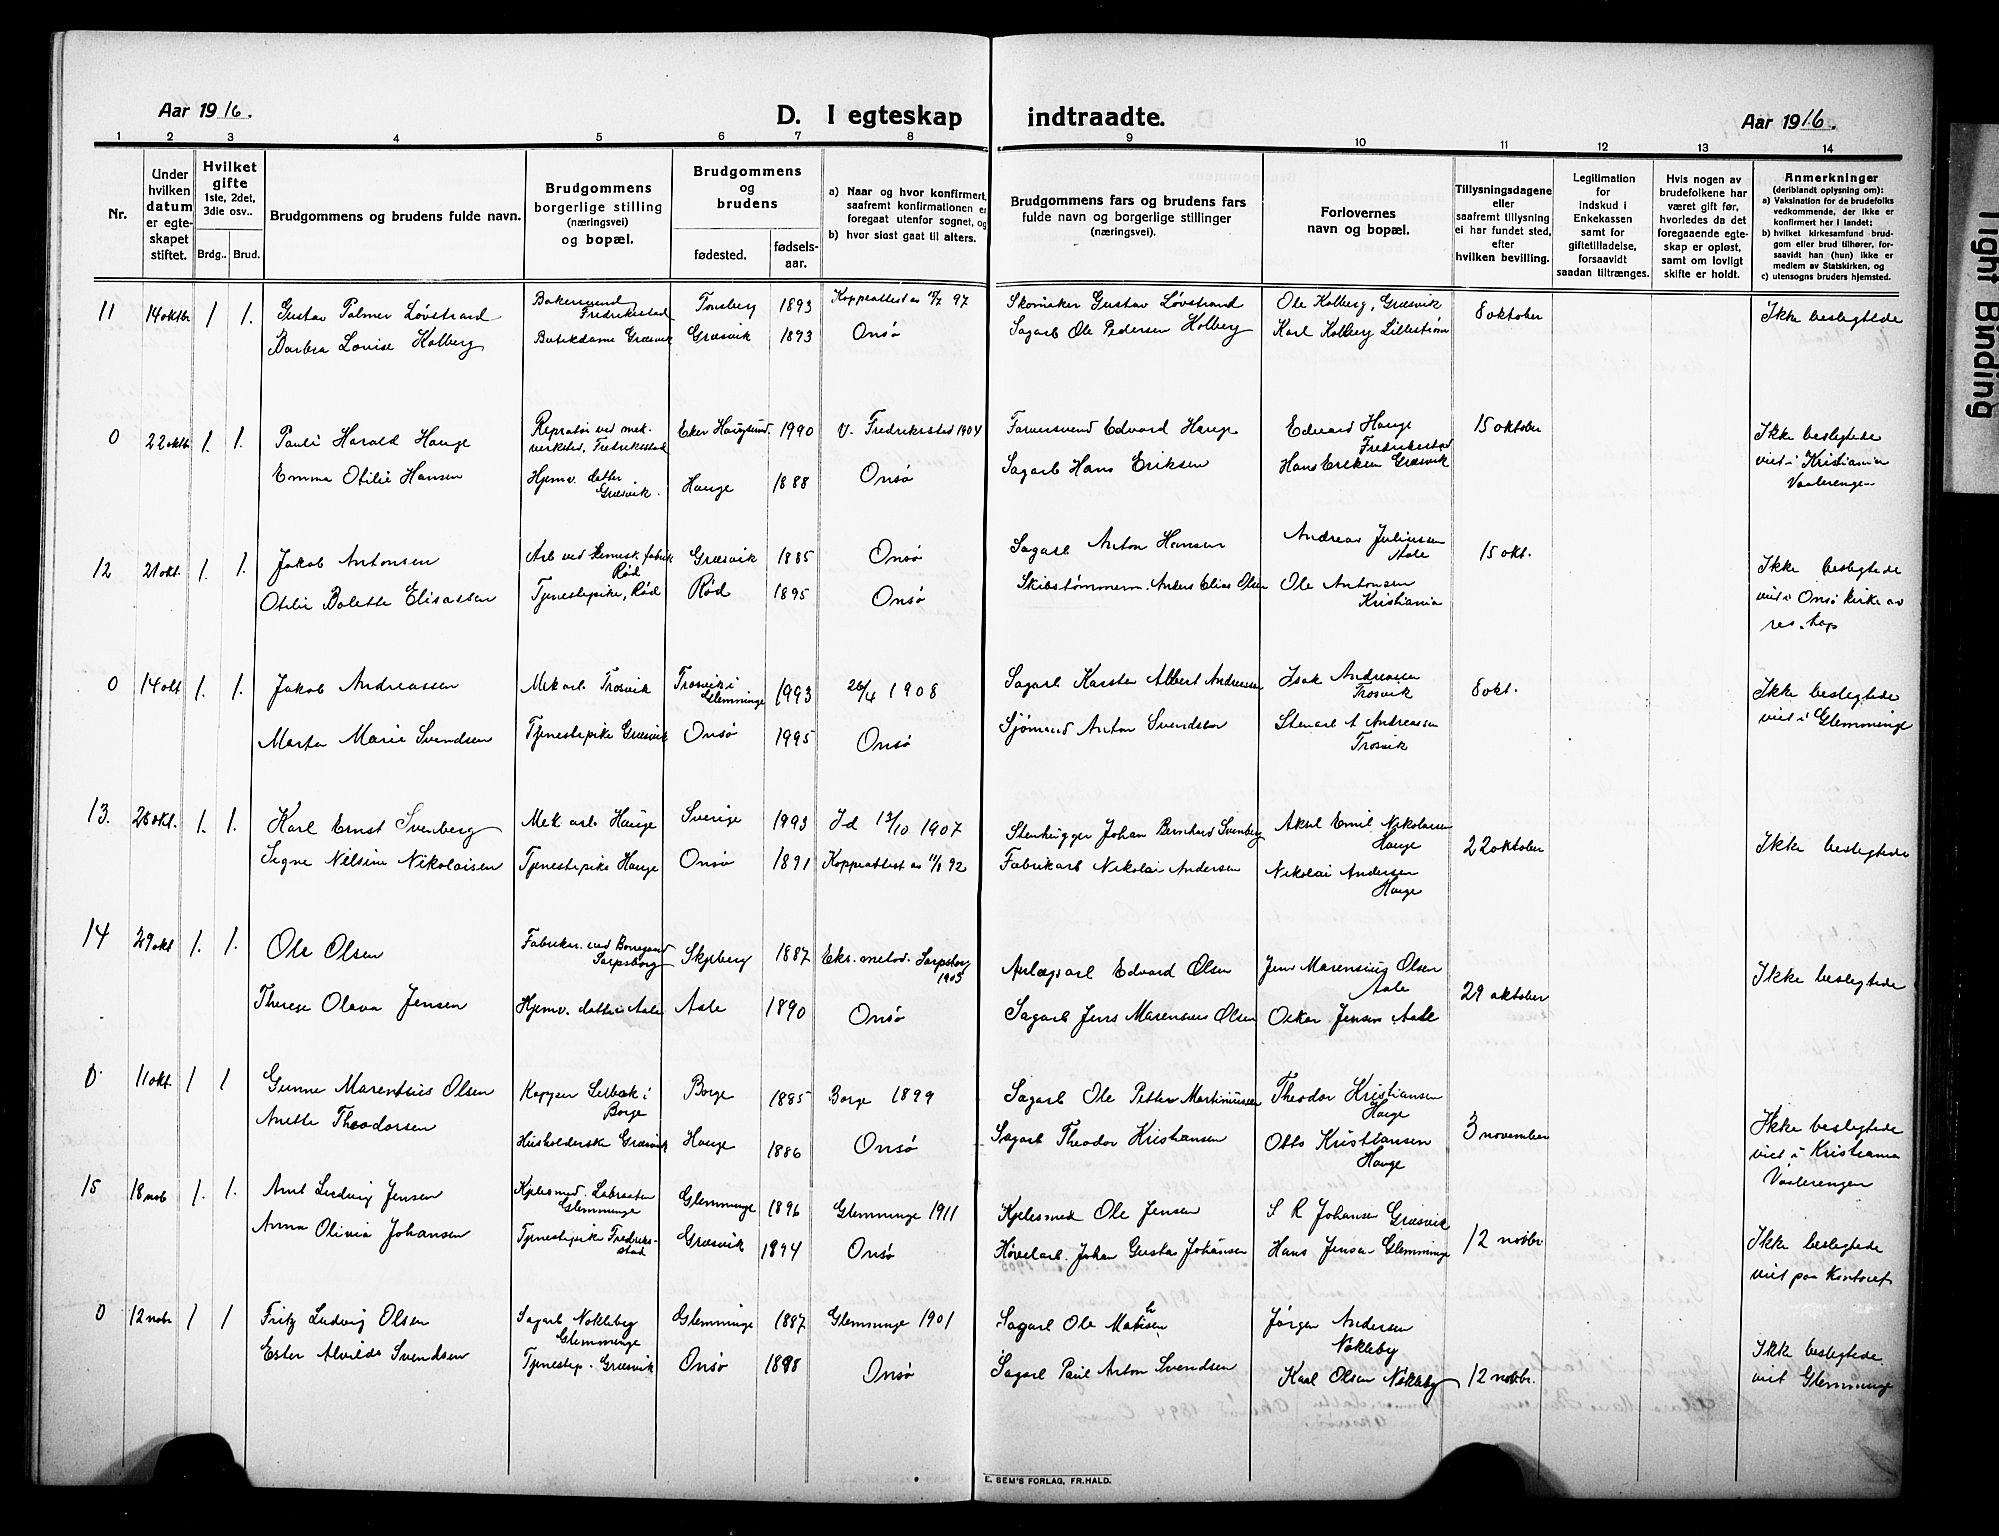 Aar 1916.
D. I egteskap indtraadte.
Aar 1916.
1 2 3 4 5 6 7 8 9 10 11 12 13 14
Nr.
Under hvilken datum er egteskapet stiftet.
Hvilket gifte 1ste, 2det, 3die osv..
Brdg.. Brud.
Brudgommens og brudens fulde navn.
Brudgommens borgerlige stilling (næringsvei) og bopæl.
Brudgommens og brudens
fødested.
fødselsaar.
a) Naar og hvor konfirmert, saafremt konfirmationen er foregaat utenfor sognet, og
b) hvor sidst gaat til alters.
Brudgommens fars og brudens fars fulde navn og borgerlige stillinger (næringsvei).
Forlovernes navn og bopæl.
Tillysningsdagene eller saafremt tillysning ei har fundet sted, efter hvilken bevilling.
Legitimation for indskud i Enkekassen samt for giftetilladelse, forsaavidt saadan tiltrænges.
Hvis nogen av brudefolkene har været gift før, hvorledes da det foregaaende egteskap er opløst, samt om lovligt skifte er holdt.
Anmerkninger (deriblandt oplysning om):
a) Vaksination for de brudefolks vedkommende, der ikke er konfirmert her i landet;
b) hvilket kirkesamfund brudgom eller brud tilhører, forsaavidt han (hun) ikke er medlem av Statskirken, og
c) utensogns bruders hjemsted.
11 14 oktbr 1 1. Gustav Palmer Løvstrand Bakersvend Fredrikstad Tønsberg 1893 Koppeattest av 97 Skomaker Gustav Løvstrand Ole Kolberg, Græsvik 8 oktober Ikke beslegtede
Barbra Lovise Kolberg Butikdame Græsvik Græsvik 1893 Onsø Sagarb Ole Pedersen Kolberg Karl Kolberg Lillestrøm
0 22 oktbr 1. 1. Pauli Harald Hauge Repratør ved mek. verksted, Fredriksstad Eker Haugsund. 1990 V. Fredriksstad 1904 Farversvend Edvard Hauge Edvard Hauge Fredriksstad 15 oktober Ikke beslegtede viet i Kristiania Vaalerenge
Emma Otilie Hansen Hjemv. datter Græsvik. Hauge 1888 Onsø Sagarb Hans Eriksen Hans Eriksen Græsvik
12 21 okt. 1. 1. Jakob Antonsen Arb ved kemisk. fabrik Rød Græsvik 1885 Onsø Sagarb Anton Hansen Andreas Juliussen Aale 15 okt. Ikke beslegtede viet i Onsø kirke av res. kap
Otilie Bolette Eliassen Tjenestepike, Rød Rød 1895 Onsø Skibstømmerm. Anders Elias Olsen Ole Antonsen Kristiania
0 14 okt 1. 1. Jakob Andreassen Mek arb. Trosvik Trosvik i Glemminge 1993 26/4 1908 Sagarb Karsten Albert Andreassen Isak Andreassen Trosvik 8 okt. Ikke beslegtede viet i Glemminge
Marta Marie Svendsen Tjenestepike Græsvik Onsø 1995 Onsø Sjømand Anton Svendsen Stenarb A Andreassen Trosvik
13. 28 okt. 1. 1. Karl Ernst Svenberg Mek arb. Hauge Sverige 1993 Id 13/10 1907 Stenhugger Johan Bernhard Svenberg Aksel Emil Nikolaisen Hauge 22 oktober Ikke beslegtede
Signe Nilsine Nikolaisen Tjenestepike Hauge Onsø 1891 Koppeattest av 92 Fabrikarb Nikolai Andersen Nikolai Andersen Hauge
14 29 okt 1. 1. Ole Olsen Fabrikar. ved Borregaard Sarpsborg Skjeberg 1887 Eks. metod. Sarpsborg 1905 Anlægsarb Edvard Olsen Jens Marensius Olsen Aale 29 oktober Ikke beslegtede
Therese Olava Jensen Hjemv. datter Aale Aale 1890 Onsø Sagarb Jens Marensius Olsen Oskar Jensen Aale
0 11 okt. 1 1 Gunne Marentsius Olsen Kapper Selbak i Borge Borge 1885 Borge 1899 Sagarb Ole Petter Martiniussen Theodor Kristiansen Hauge 3 november Ikke beslegtede viet i Kristiania Vaalerengen
Anette Theodorsen Husholderske Græsvik Hauge 1886 Onsø Sagarb Theodor Kristiansen Otto Kristiansen Hauge
15 18 nob 1. 1. Arnt Ludvig Jensen Kjelesmed. Labraaten Glemminge Glemminge 1896 Glemminge 1911 Kjelesmed Ole Jensen S R Johansen Græsvik 12 nobbr. Ikke beslegtede viet paa kontoret
Anna Olivia Johansen Tjenestepike Fredriksstad Græsvik 1894 Onsø Høvelarb. Johan Gustav Johansen Hans Jensen Glemminge
0 12 nobr 1 1 Fritz Ludvig Olsen Sagarb Nokleby Glemminge Glemminge 1887 Glemminge 1901 Sagarb Ole Mathisen Jørgen Andersen Nøkleby 12 nobbr. Ikke beslegtede viet Glemminge
Ester Alvilde Svendsen Tjenestep. Græsvik Onsø 1888 Onsø Sagarb Paul Anton Svendsen Karl Olsen Nøkleby
E. SEM'S FORLAG, FR.HALD.
Tight Binding